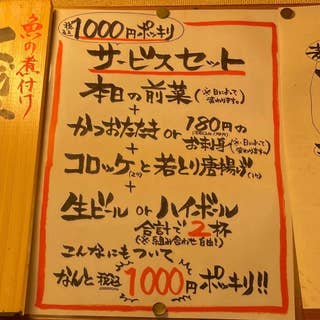 税込1000円ポッキリ
サービスセット
本日の前菜(※日によって変わります。)
+
かつおたたき or 180円のお刺身(※日によって変わります。)
+
コロッケ(2ケ)と若とり唐揚げ(1ケ)
+
生ビール or ハイボール
合計で2杯
(※組み合わせ自由!)
こんなにもついて
なんと税込1000円ポッキリ!!
魚の煮付け